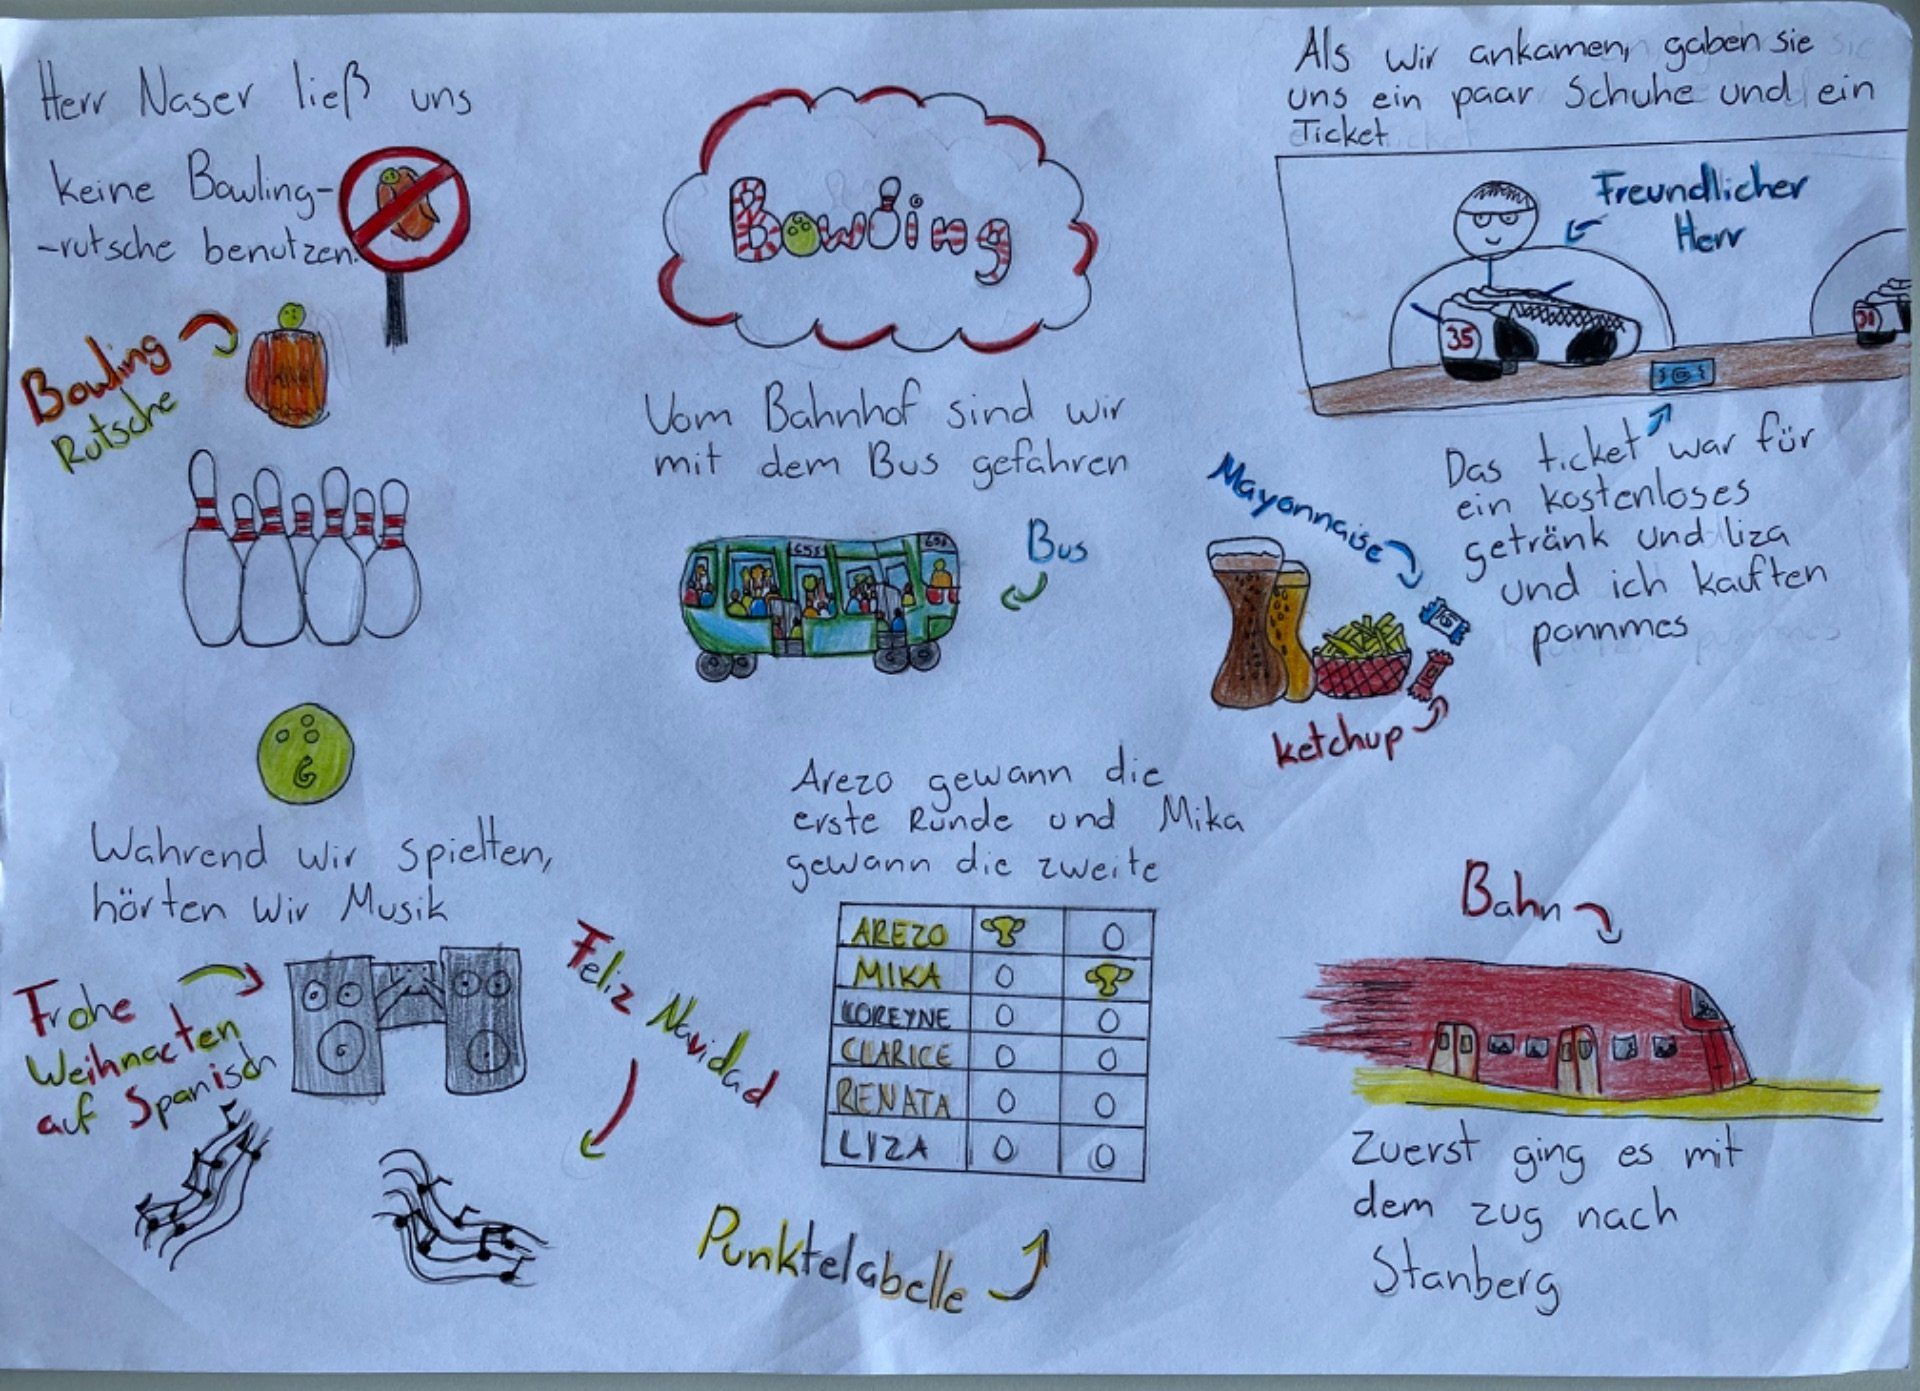 Herr Naser ließ uns
keine Bowling-
-rutsche benutzen.
Bowling
Rutsche
Bowling
Als wir ankamen, gaben sie
uns ein paar Schuhe und ein
Ticket
Freundlicher
Herr
35
31
Vom Bahnhof sind wir
mit dem Bus gefahren
Bus
Das ticket war für
ein kostenloses
getränk und liza
und ich kauften
ponnmes
Mayonnaise
ketchup
Wahrend wir spielten,
hörten wir Musik
Frohe
Weihnacten
auf Spanisch
Feliz Navidad
Arezo gewann die
erste Runde und Mika
gewann die zweite
AREZO O
MIKA O
LOREYNE O O
CLARICE O O
RENATA O O
LIZA O O
Punktelabelle
Bahn
Zuerst ging es mit
dem zug nach
Stanberg